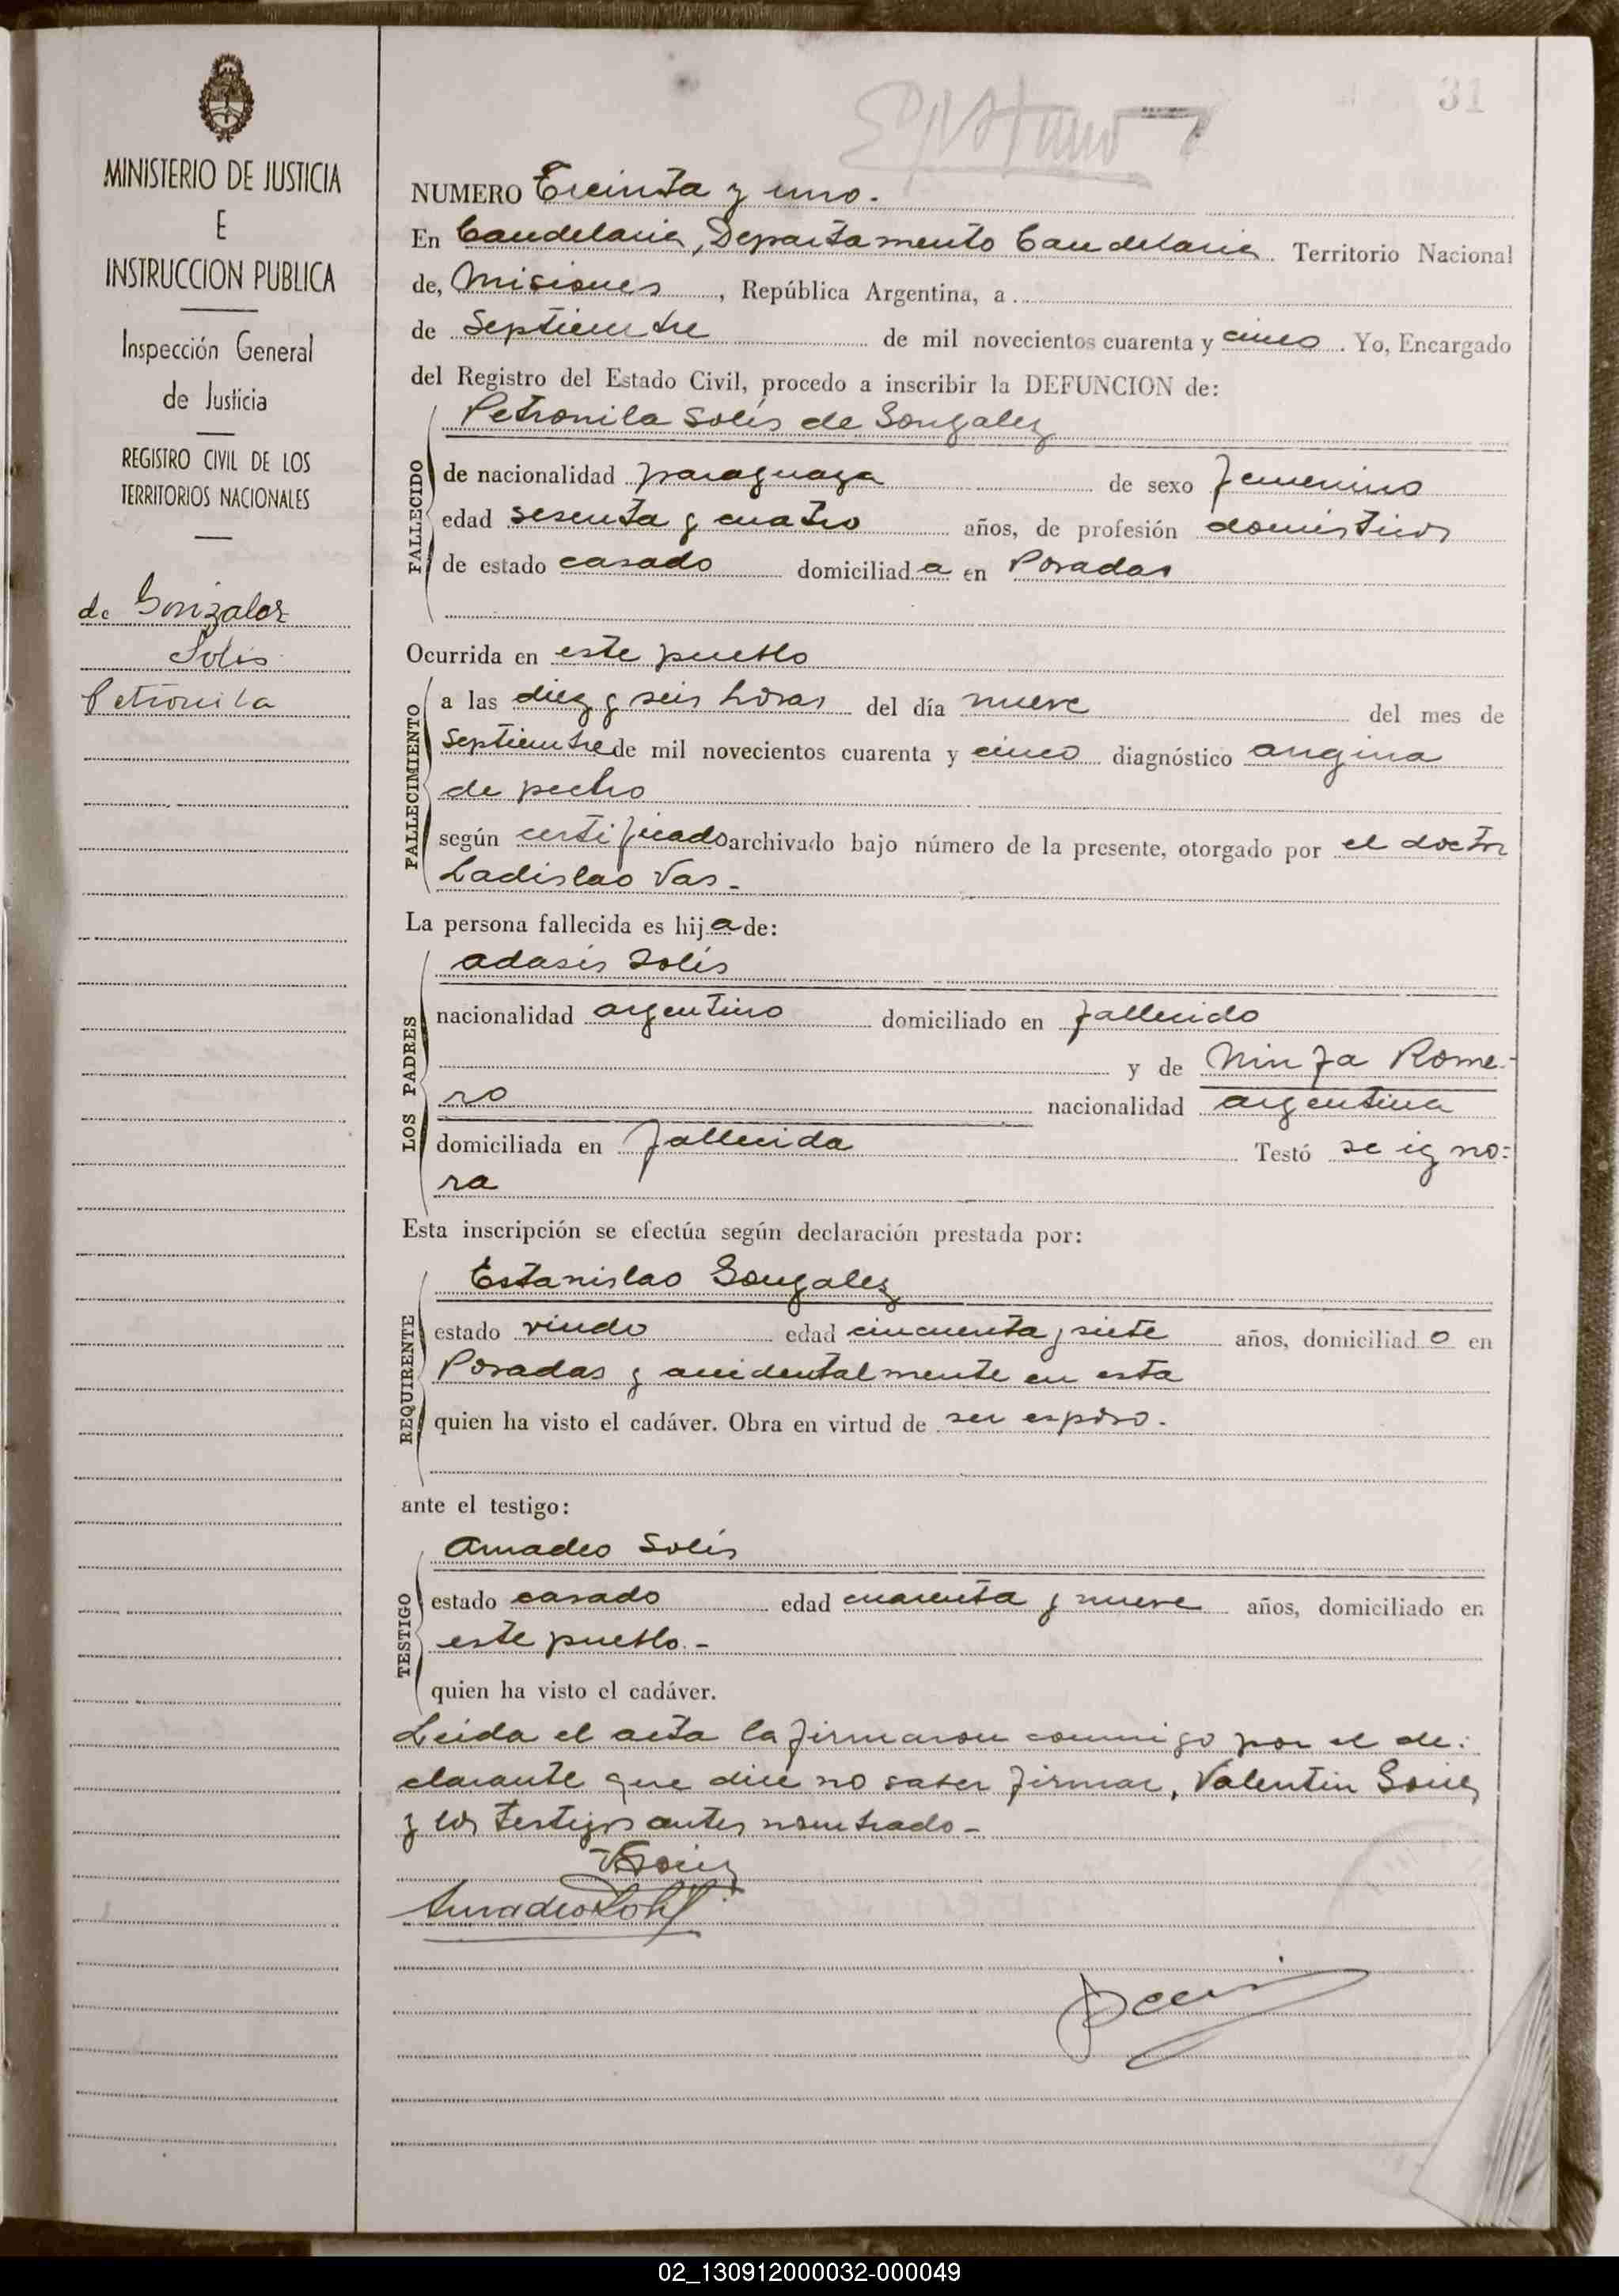 31
MINISTERIO DE JUSTICIA
E
INSTRUCCION PUBLICA
Inspección General
de Justicia
REGISTRO CIVIL DE LOS
TERRITORIOS NACIONALES
de Gonzalez
Solis
Petronila
NUMERO Treinta y uno.
En Candelaria, Departamento Candelaria. Territorio Nacional
de, Misiones, República Argentina, a
de Septiembre de mil novecientos cuarenta y cinco. Yo, Encargado
del Registro del Estado Civil, procedo a inscribir la DEFUNCION de:
Petronila Solis de Gonzalez
FALLECIDO
de nacionalidad paraguaya de sexo femenino
edad sesenta y cuatro años, de profesión domésticos
de estado casado domiciliada en Posadas
Ocurrida en este pueblo
FALLECIMIENTO
a las diez y seis horas del día nueve del mes de
Septiembre de mil novecientos cuarenta y cinco diagnóstico angina
de pecho
según certificado archivado bajo número de la presente, otorgado por el doctor
Ladislao Vas.-
La persona fallecida es hija de:
LOS PADRES
adasis Solis
nacionalidad argentino domiciliado en fallecido
y de Ninfa Rome-
ro nacionalidad argentina
domiciliada en fallecida Testó se igno=
ra
Esta inscripción se efectúa según declaración prestada por:
REQUIRENTE
Estanislao Gonzalez
estado viudo edad cincuenta y siete años, domiciliado en
Posadas y accidentalmente en esta
quien ha visto el cadáver. Obra en virtud de ser esposo.
ante el testigo:
TESTIGO
Amadeo Solis
estado casado edad cuarenta y nueve años, domiciliado en
este pueblo.-
quien ha visto el cadáver.
Leida el acta la firmaron conmigo por el de:
clarante que dice no saber firmar, Valentin
y los testigos antes nombrado-
Amadeo Solis
02_130912000032-000049